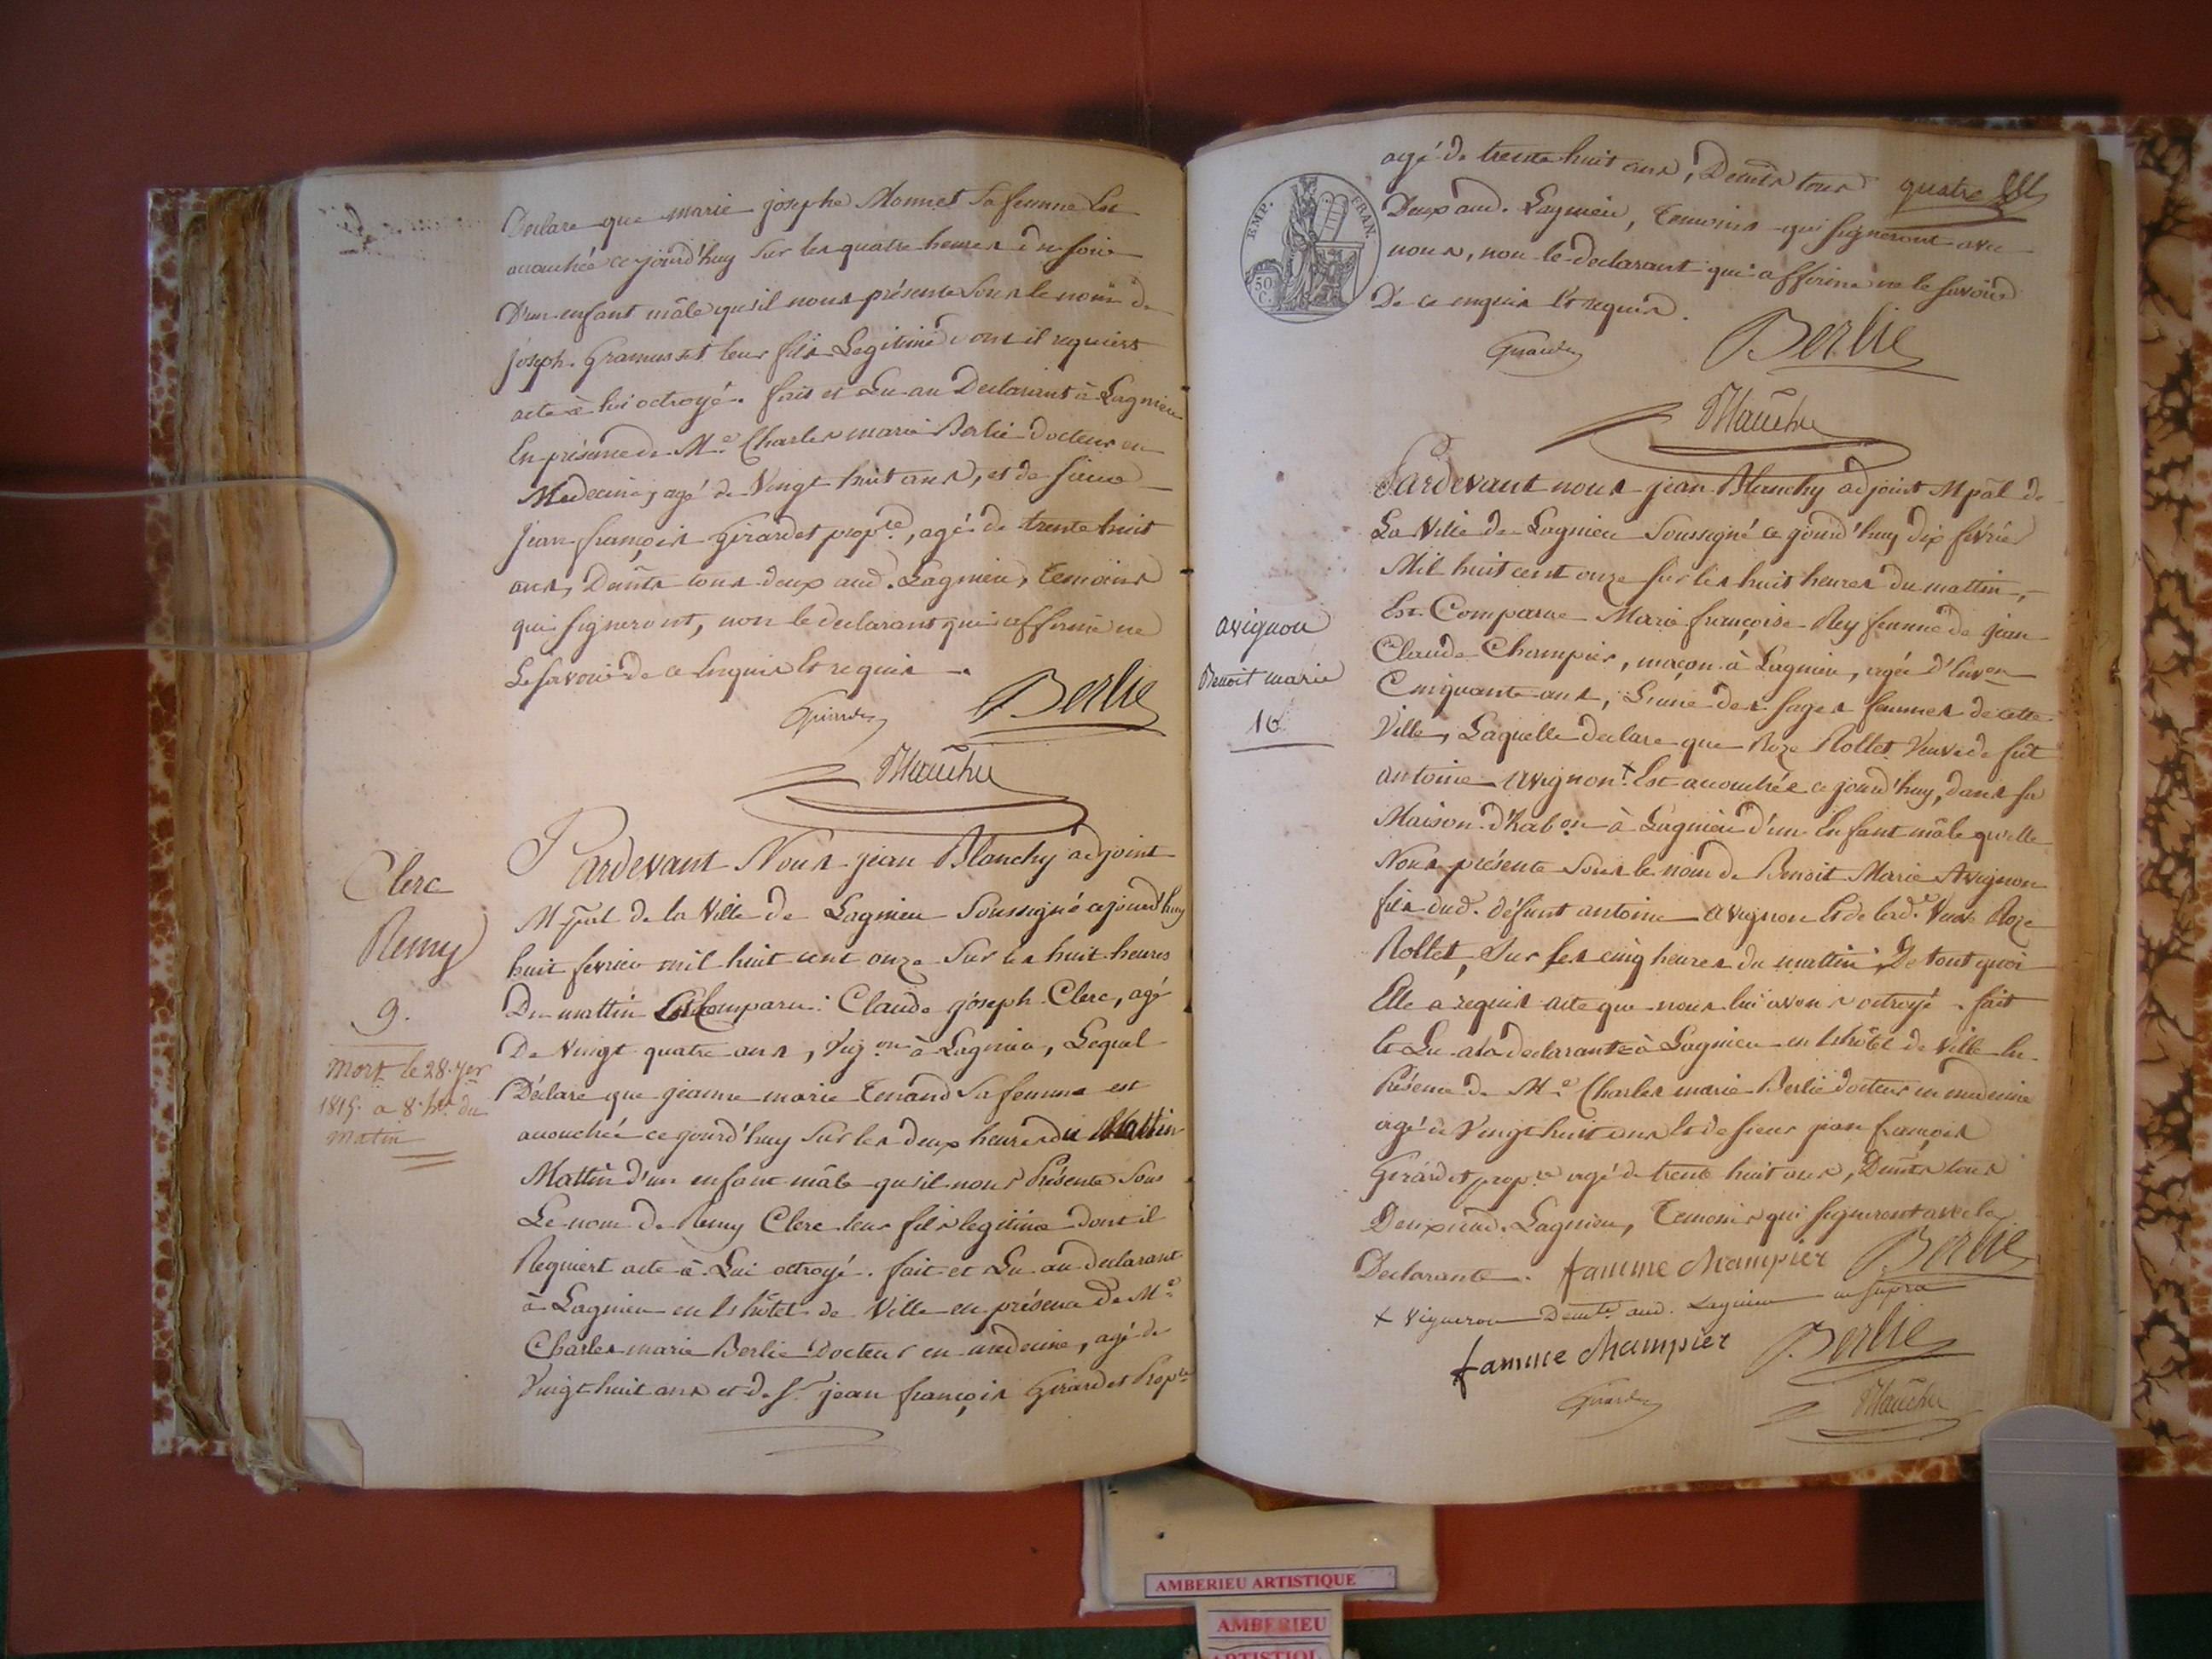 Declare que marie josephe Monnet Sa femme Est
accouchée ce jourd'huy Sur les quatre heures du soir
D'un enfant mâle qu'il nous présente Sous le nom de
joseph Gramusset leur fils Legitime dont il requiert
acte à lui octroyé. fait et Lu au Declarant à Lagnieu
En présence de Me. Charles marie Berlie docteur en
Medecine, agé de Vingt huit ans, et de sieur
jean françois Girardet propre, agé de trente huit
ans, Demts tous deux aud. Lagnieu, temoins
qui signeront, non le declarant qui affirme ne
Le Savoir de ce Enquis Et requis.
Girardet
Berlie
Blanchy
Clerc
Remy
9.
Mort le 28. 7er
1815. a 8. hres du
matin
Pardevant Nous jean Blanchy adjoint
Mpal de la Ville de Lagnieu Soussigné cejourd'huy
huit fevrier mil huit cent onze Sur les huit heures
Du mattin Est Comparu Claude joseph Clerc, agé
De Vingt quatre ans, Vig on à Lagnieu, Lequel
Déclare que jeanne marie Tenand Sa femme est
accouchée ce jourd'huy Sur les deux heures du Mattin
Mattin d'un enfant mâle qu'il nous Présente Sous
Le nom de Remy Clerc leur fils legitime dont il
Requiert acte à Lui octroyé. fait et Lu au declarant
à Lagnieu en Lhôtel de Ville en présence de Me.
Charles marie Berlie Docteur en medecine, agé de
Vingt huit ans et de Sr. jean françois Girardet Propre
EMP. FRAN.
50 C.
agé de trente huit ans, Demts tous quatre
Deux aud. Lagnieu, temoins qui signeront avec
nous, non le declarant qui affirme ne le savoir
De ce enquis Et requis.
Girardet
Berlie
Blanchy
avignon
Benoit marie
10
Pardevant nous jean Blanchy adjoint Mpâl de
La Ville de Lagnieu Soussigné ce jourd'huy dix février
Mil huit cent onze sur les huit heures du mattin,
Est Comparue Marie françoise Rey femme de jean
Claude Champier, maçon à Lagnieu, agée d'Envon
Cinquante ans, L'une des sages femmes de cette
Ville, Laquelle declare que Roze Rollet Veuve de fût
antoine Avignon + Est accouchée ce jourd'huy, dans sa
Maison d'hab on à Lagnieu d'un Enfant mâle qu'elle
Nous présente Sous le nom de Benoit Marie Avignon
fils dud. défunt antoine avignon Et de lad.e Veuve Roze
Rollet, Sur les cinq heures du mattin, De tout quoi
Elle a requis acte que nous lui avons octroyé. fait
Et Lu a la declarante à Lagnieu en Lhôtel de Ville En
Présence de Me. Charles marie Berlie docteur en medecine
agé de Vingt huit ans Et de sieur jean françois
Girardet propre agé de trente huit ans, Demts tous
Deux aud. Lagnieu, Temoins qui signeront avec la
Declarante. famme Champier Berlie
+ Vigneron Demts. aud. Lagnieu ut supra
famme Champier Berlie
Girardet
Blanchy
AMBERIEU ARTISTIQUE
AMBERIEU
ARTISTIQUE